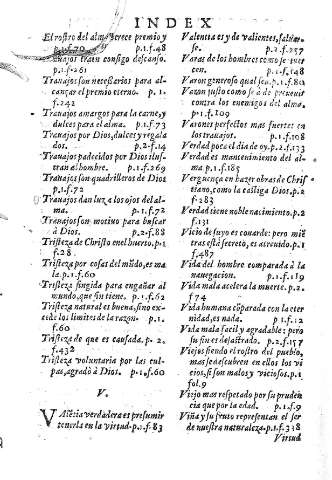 INDEX
El rostro del alma merece premio y
p.1.f.70 p.1.f.48
Trauajos traen consigo descanso.
p.1.f.261
Trauajos son necessarios para al-
cançar el premio eterno. p.1.
f.242
Trauajos amargos para la carne, y
dulces para el alma. p.1.f.73
Trauajos por Dios, dulces y regala
dos. p.2.f.14
Trauajos padecidos por Dios ilus-
tran al hombre. p.1.f.269
Trauajos son quadrilleros de Dios
p.1.f.72
Trauajos dan luz a los ojos del al-
ma. p.1.f.72
Trauajos son motiuo para buscar
à Dios. p.2.f.88
Tristeza de Christo en el huerto. p.1
f.28
Tristeza por cosas del mũdo, es ma
la. p.1.f.60
Tristeza fingida para engañar al
mundo, que fin tiene. p.1.f.62
Tristeza natural es buena, sino ex-
cede los limites de la razon. p.1.
f.60
Tristeza de que es causada. p.2.
f.432
Tristeza voluntaria por las cul-
pas, agradò à Dios. p.1.f.60
V.
VAlẽtia verdadera es presumir
tenerla en la virtud. p.1.f.83
Valentia es y de valientes,
se. p.2.f.257
Varas de los hombres como se
cen. p.1.f.148
Varon generoso qual sea. p.1.f.81
Varon justo como se à de preuenir
contra los enemigos del alma.
p.1.f.109
Varones perfectos mas fuertes en
los trauajos. p.1.f.108
Verdad poca el dia de oy. p.2.f.133
Verdad es mantenimiento del al-
ma p.1.f.185
Verguença en hazer obras de Chris
tiano, como la castiga Dios. p.2
f.283
Verdad tiene noble nacimiento. p.2
f.131
Vicio de suyo es couarde: pero miẽ
tras està secreto, es atreuido. p.1
f.487
Vida del hombre comparada à la
nauegacion. p.1.f.119
Vida mala acelera la muerte. p.2.
f.74
Vida humana cõparada con la eter
nidad, es nada. p.1.f.12
Vida mala facil y agradable: pero
su fin es desastrado. p.2.f.157
Viejos siendo el rostro del pueblo,
mas se descubren en ellos los vi
cios, si son malos y viciosos. p.1
fol.9
Viejo mas respetado por su pruden
cia que por la edad. p.1.f.9
Viña y su fruto representan el ser
de nuestra naturaleza. p.1.f.138
Virtud